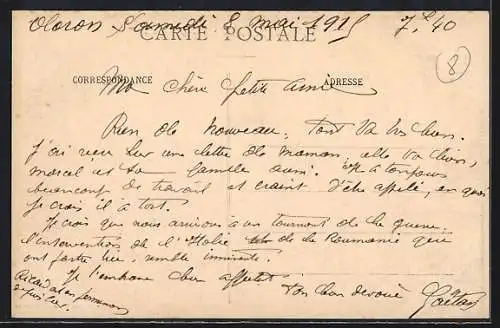 Oloron Samedi 8 mai 1915 7h40
CARTE POSTALE
8
CORRESPONDANCE ADRESSE
Ma chère petite amie
Rien de nouveau, tout va très bien.
J'ai reçu hier une lettre de maman, elle va bien,
marcel et sa famille aussi. Il a toujours
beaucoup de travail et craint d'être appelé, en quoi
je crois il a tort.
Je crois que nous arrivons à un tournant de la guerre.
L'intervention de l'Italie de la Roumanie
ont semble imminente.
Je t'embrasse bien affectueusement
Ton bien dévoué Gaëtan
en permission